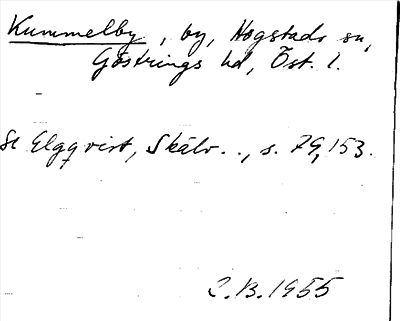 Kummelby, by, Hogstads sn,
Göstrings hd, Öst. l.
Se Elgqvist, Skälv.., s. 79, 153.
2.B.1955